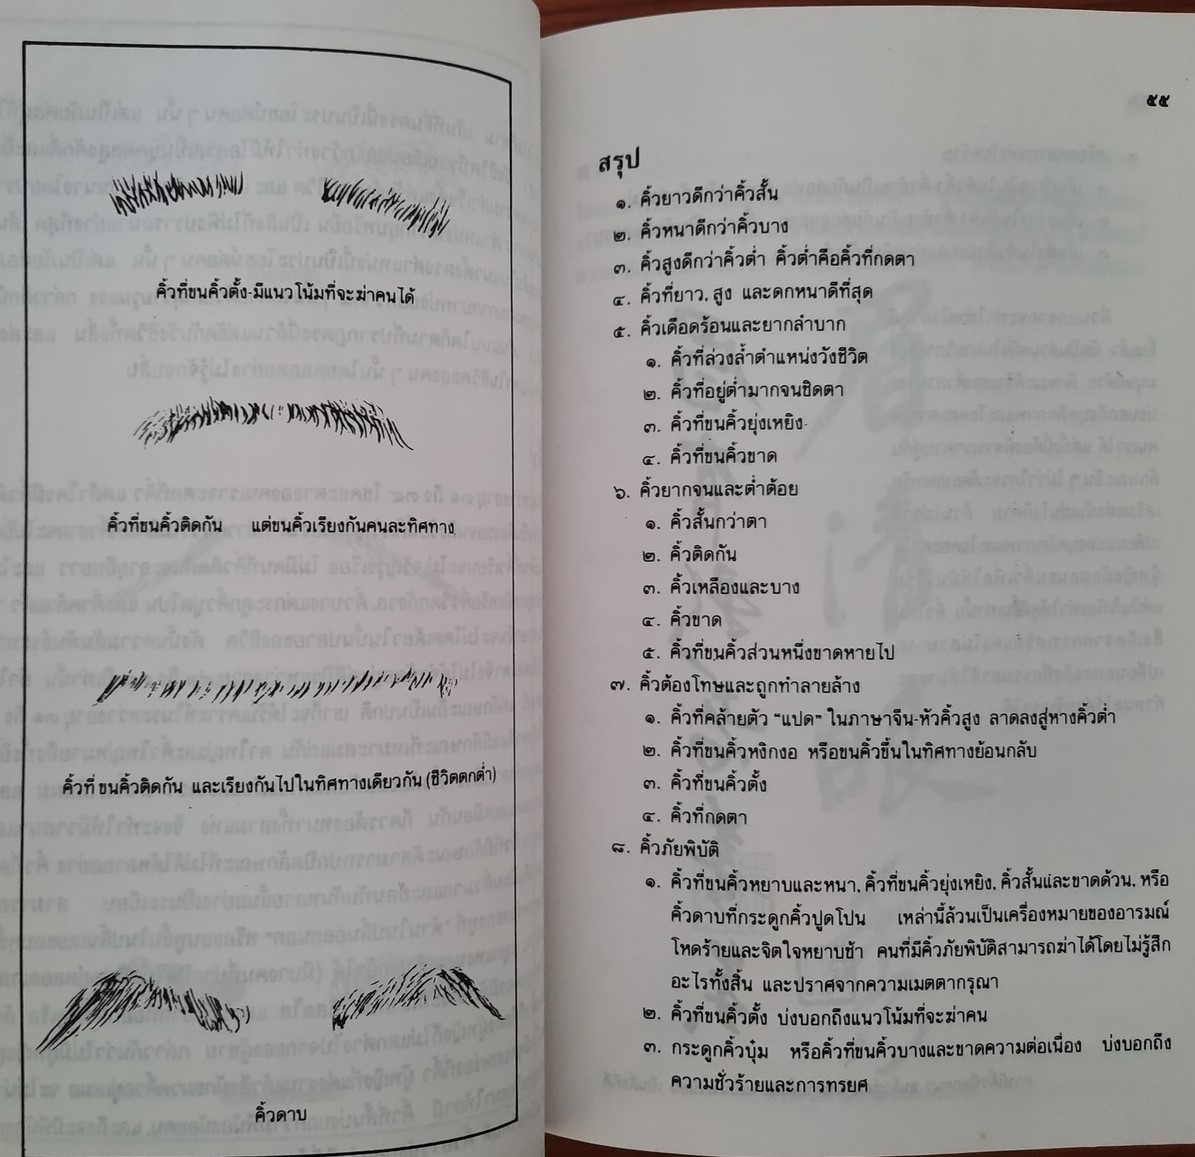 คิ้วที่ขนคิ้วตั้ง-มีแนวโน้มที่จะฆ่าคนได้
คิ้วที่ขนคิ้วติดกัน แต่ขนคิ้วเรียงกันคนละทิศทาง
คิ้วที่ขนคิ้วติดกัน และเรียงกันไปในทิศทางเดียวกัน (ชีวิตตกต่ำ)
คิ้วดาบ
๕๕
สรุป
๑. คิ้วยาวดีกว่าคิ้วสั้น
๒. คิ้วหนาดีกว่าคิ้วบาง
๓. คิ้วสูงดีกว่าคิ้วต่ำ คิ้วต่ำคือคิ้วที่กดตา
๔. คิ้วที่ยาว, สูง และดกหนาดีที่สุด
๕. คิ้วเดือดร้อนและยากลำบาก
๑. คิ้วที่ล่วงล้ำตำแหน่งวังชีวิต
๒. คิ้วที่อยู่ต่ำมากจนชิดตา
๓. คิ้วที่ขนคิ้วยุ่งเหยิง
๔. คิ้วที่ขนคิ้วขาด
๖. คิ้วยากจนและต่ำต้อย
๑. คิ้วสั้นกว่าตา
๒. คิ้วติดกัน
๓. คิ้วเหลืองและบาง
๔. คิ้วขาด
๕. คิ้วที่ขนคิ้วส่วนหนึ่งขาดหายไป
๗. คิ้วต้องโทษและถูกทำลายล้าง
๑. คิ้วที่คล้ายตัว “แปด” ในภาษาจีน-หัวคิ้วสูง ลาดลงสู่หางคิ้วต่ำ
๒. คิ้วที่ขนคิ้วหงิกงอ หรือขนคิ้วขึ้นในทิศทางย้อนกลับ
๓. คิ้วที่ขนคิ้วตั้ง
๔. คิ้วที่กดตา
๘. คิ้วภัยพิบัติ
๑. คิ้วที่ขนคิ้วหยาบและหนา, คิ้วที่ขนคิ้วยุ่งเหยิง, คิ้วสั้นและขาดด้วน, หรือ
คิ้วดาบที่กระดูกคิ้วปูดโปน เหล่านี้ล้วนเป็นเครื่องหมายของอารมณ์
โหดร้ายและจิตใจหยาบช้า คนที่มีคิ้วภัยพิบัติสามารถฆ่าได้โดยไม่รู้สึก
อะไรทั้งสิ้น และปราศจากความเมตตากรุณา
๒. คิ้วที่ขนคิ้วตั้ง บ่งบอกถึงแนวโน้มที่จะฆ่าคน
๓. กระดูกคิ้วบุ๋ม หรือคิ้วที่ขนคิ้วบางและขาดความต่อเนื่อง บ่งบอกถึง
ความชั่วร้ายและการทรยศ